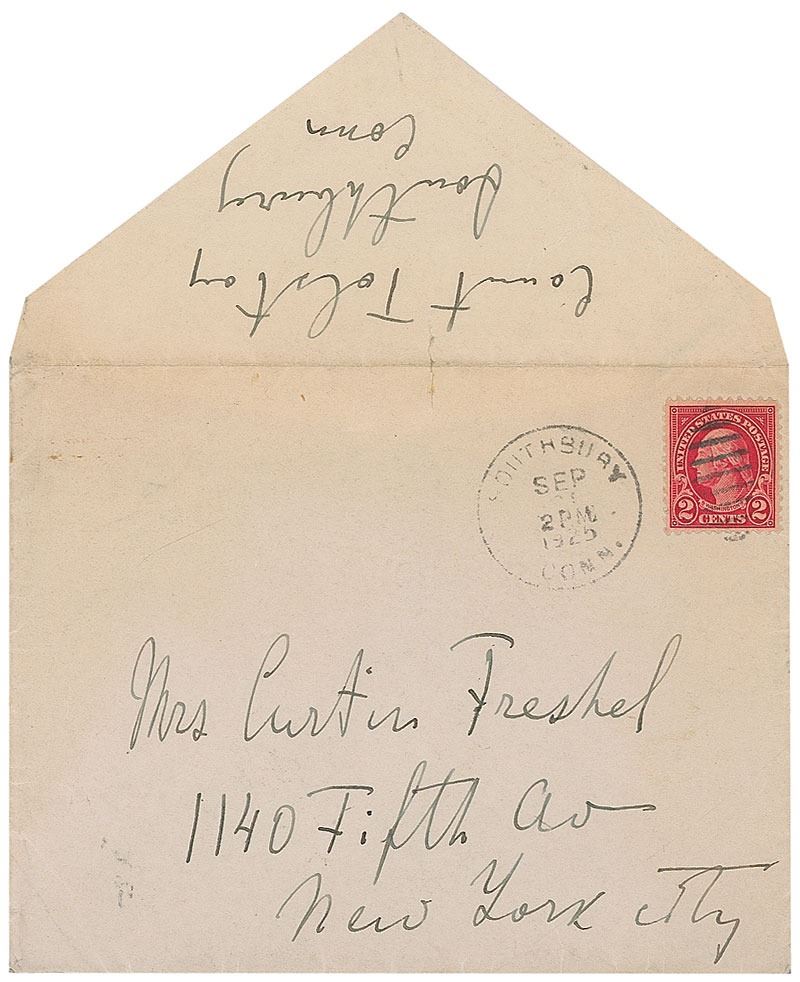 Count Tolstoy
Southbury
Conn
SOUTHBURY
SEP
2 PM
1925
CONN.
UNITED STATES POSTAGE
WASHINGTON
2 CENTS 2
Mrs Curtis Freshel
1140 Fifth Av
New York City